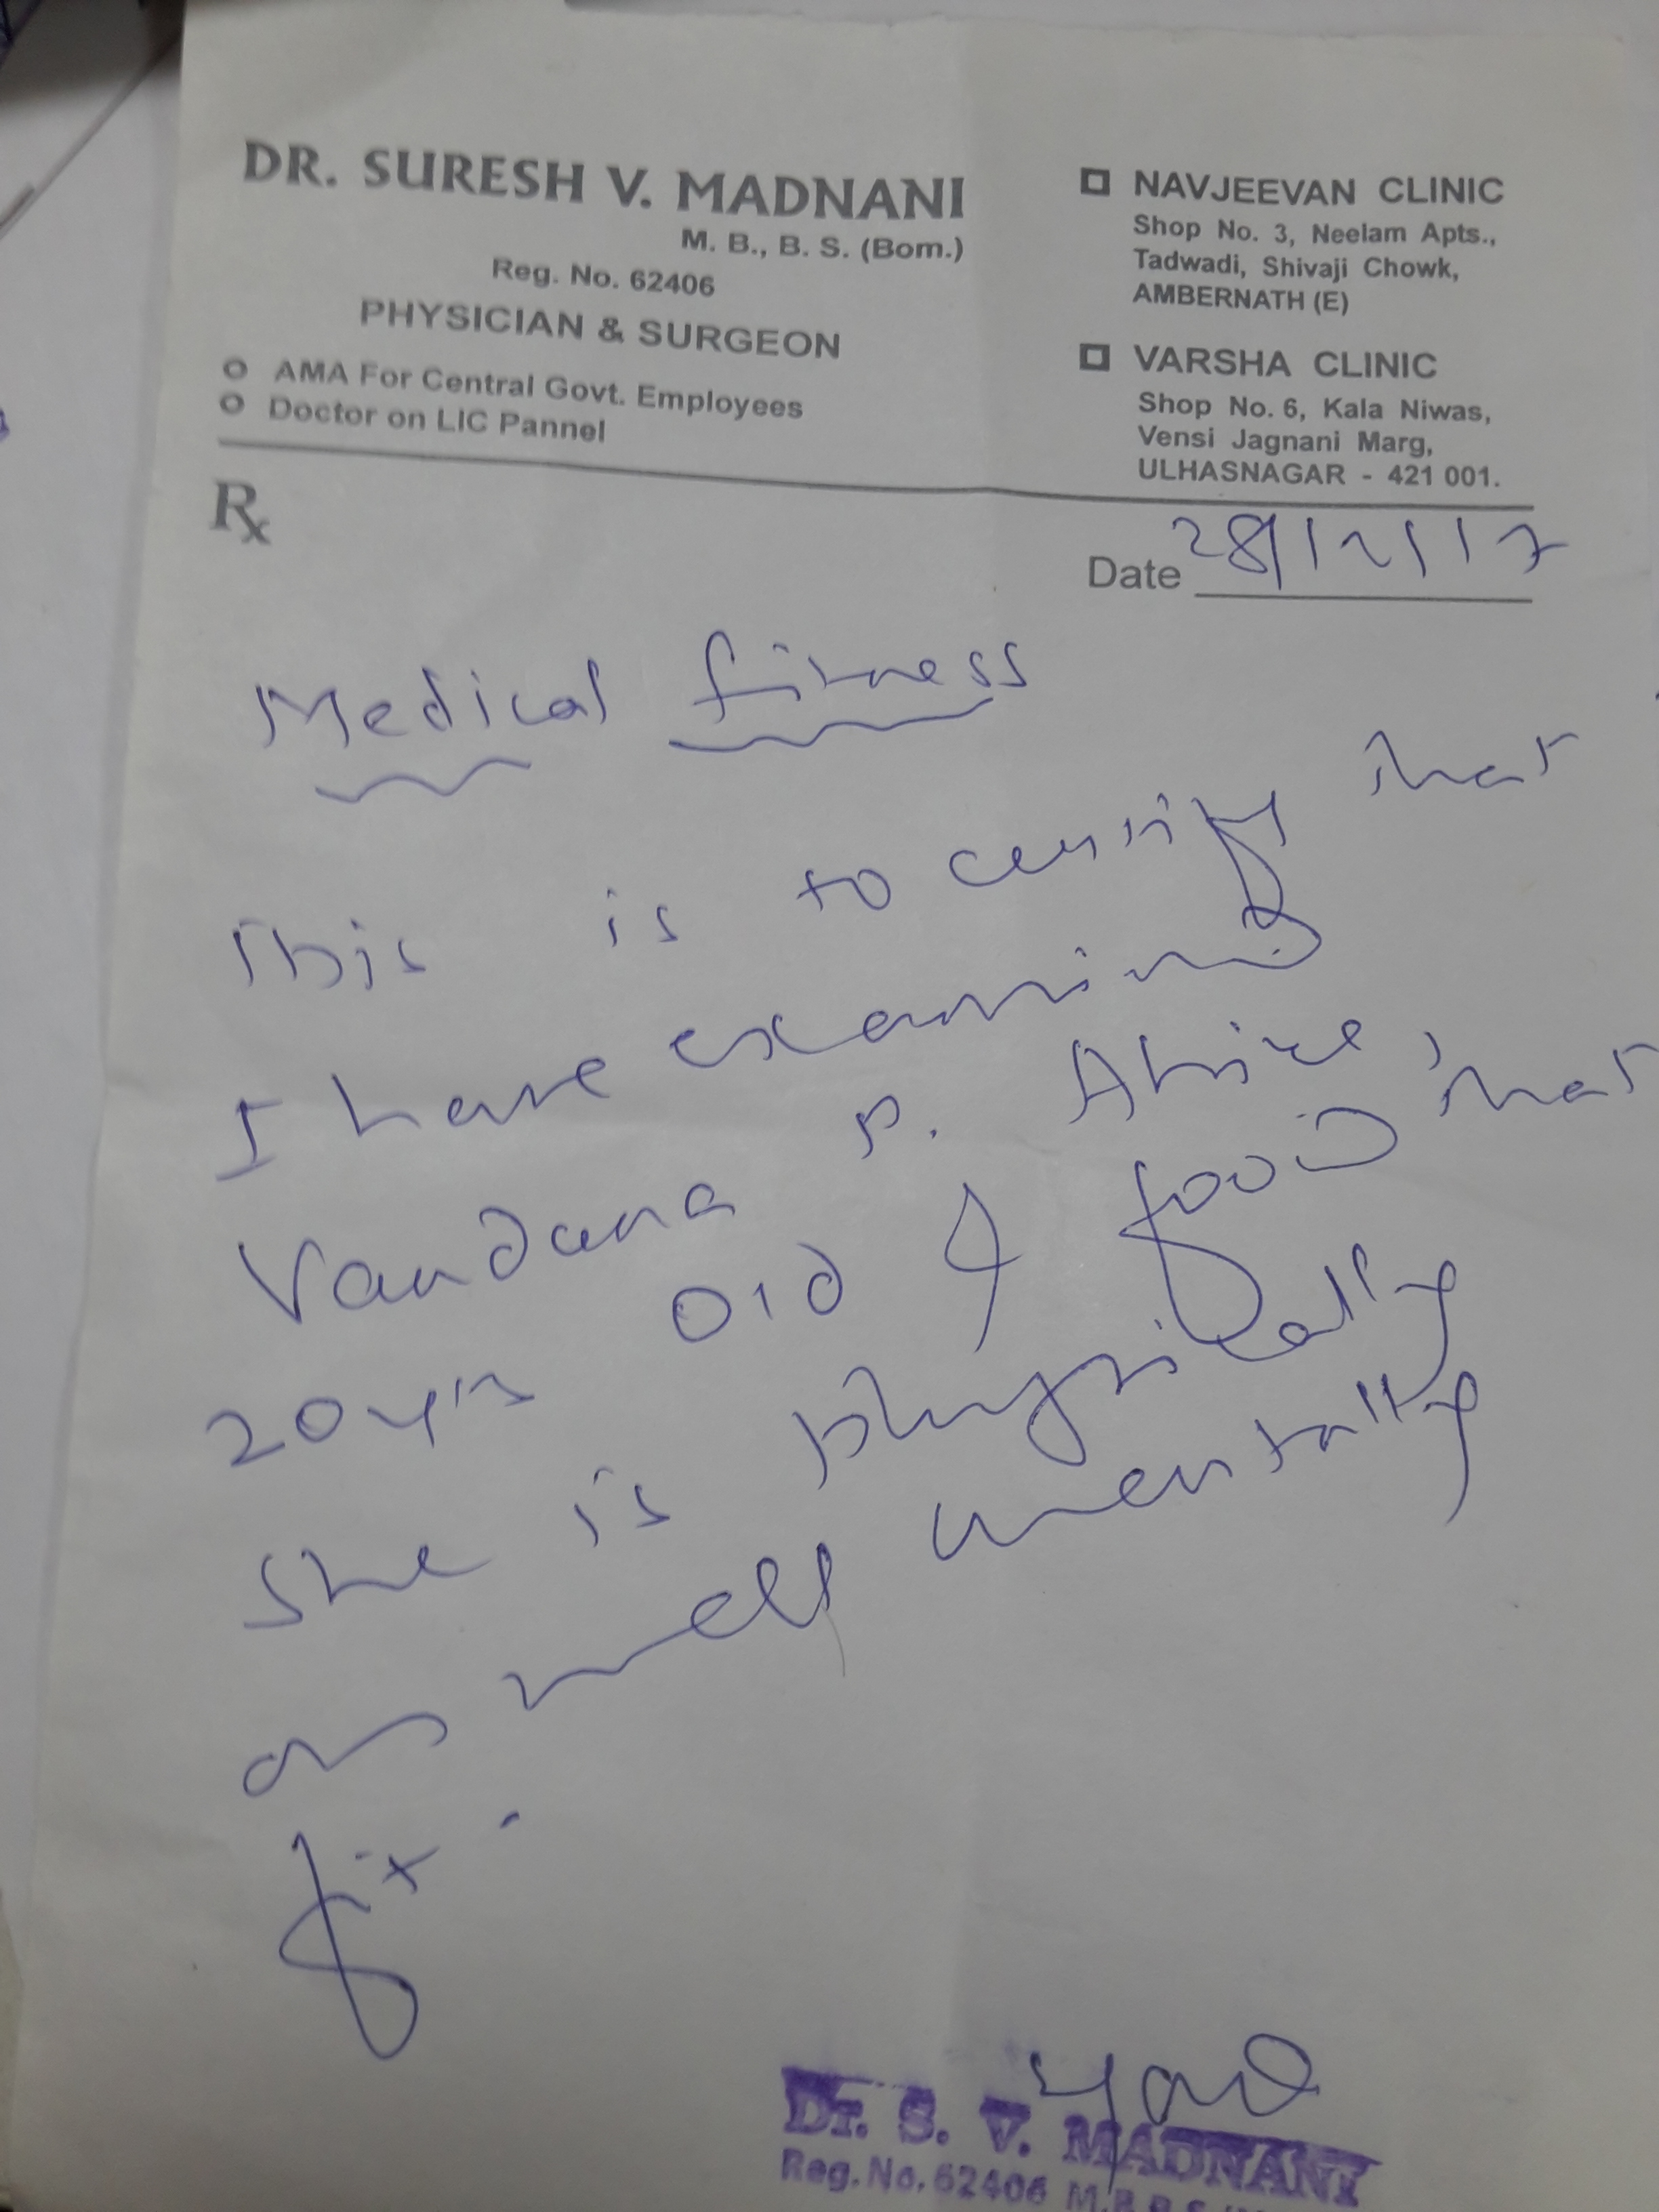 DR. SURESH V. MADNANI
M. B., B. S. (Bom.)
Reg. No. 62406
PHYSICIAN & SURGEON
AMA For Central Govt. Employees
Doctor on LIC Pannel
NAVJEEVAN CLINIC
Shop No. 3, Neelam Apts.,
Tadwadi, Shivaji Chowk,
AMBERNATH (E)
VARSHA CLINIC
Shop No. 6, Kala Niwas,
Vensi Jagnani Marg,
ULHASNAGAR - 421 001.
Rx
Date 28/12/17
Medical fitness
This is to certify that
I have examined
Vandana P. Ahire,
20 yrs old & found that
She is physically
as well mentally
fit.
Dr. S. V. MADNANI
Reg. No. 62406 M.B.B.S.